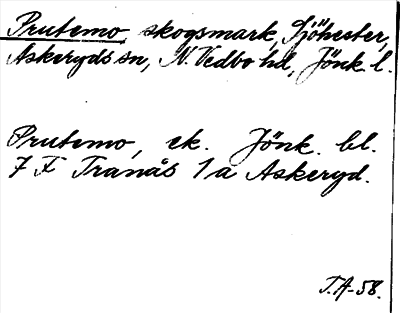 Prutemo, skogsmark, Sjöhester,
Askeryds sn, N. Vedbo hd, Jönk. l.
Prutemo, ek. Jönk. bl.
7 F Tranås 1 a Askeryd.
T.A-58.